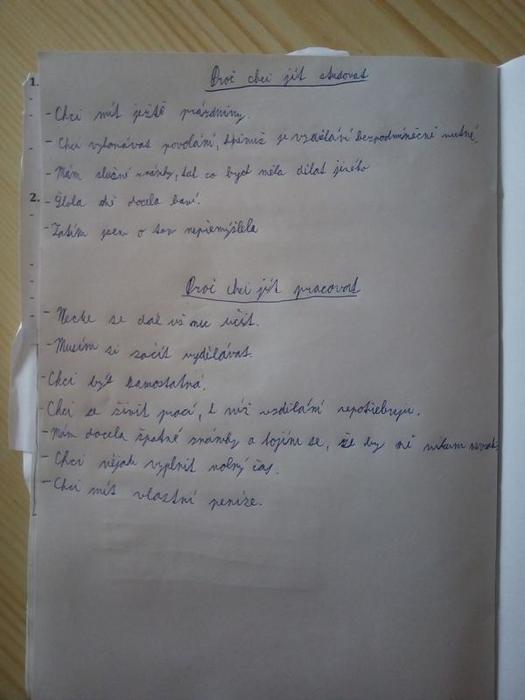 1.
Proč chci jít studovat
- Chci mít ještě prázdniny.
- Chci vykonávat povolání, k němuž je vzdělání bezpodmínečně nutné.
- Mám slušné známky, tak co bych měla dělat jiného
2.
- Škola mě docela baví.
- Zatím jsem o tom nepřemýšlela
Proč chci jít pracovat
- Nechce se dál už moc učit.
- Musím si začít vydělávat.
- Chci být samostatná.
- Chci se živit prací, k níž vzdělání nepotřebuju.
- Mám docela špatné známky a bojím se, že by mě nikam
- Chci nějak vyplnit volný čas.
- Chci mít vlastní peníze.